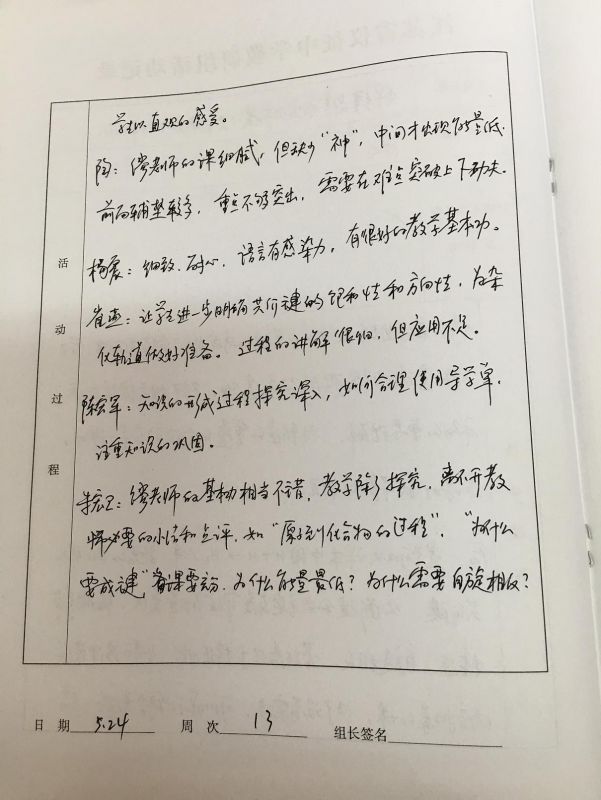 学生以直观的感受。
陶：缪老师的课细腻，但缺少“神”，中间才出现能量低.
前面铺垫较多，重点不够突出，需要在难点突破上下功夫.
杨震：细致、耐心、语言有感染力，有很好的教学基本功。
崔燕：让学生进一步明确共价键的饱和性和方向性，为杂
化轨道做好准备。过程的讲解很细，但应用不足。
陈宏军：知识的形成过程探究深入，如何合理使用导学单，
注重知识的巩固。
宏卫：缪老师的基本功相当不错，教学除了探究，离不开教
师必要的小结和点评，如“原子到化合物的过程”，“为什么
要成键”备课要充分，为什么能量最低？为什么需要自旋相反？
活动过程
日 期 5.24 周 次 13 组长签名